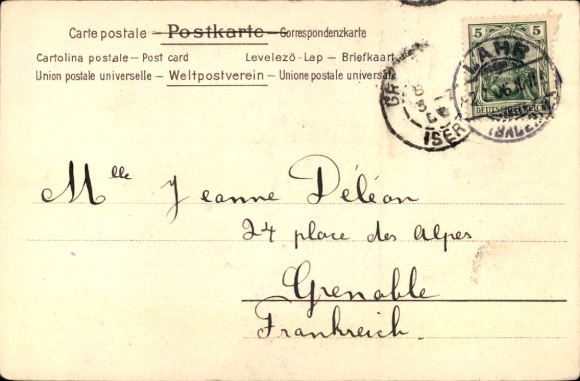 Carte postale — Postkarte — Correspondenzkarte
Cartolina postale — Post card Levelezö-Lap — Briefkaart
Union postale universelle — Weltpostverein — Unione postale universale
5 5
LAHR
(BADEN)
DEUTSCHES REICH
ISÈRE
Mlle Jeanne Déléon
24 place des Alpes
Grenoble
Frankreich.